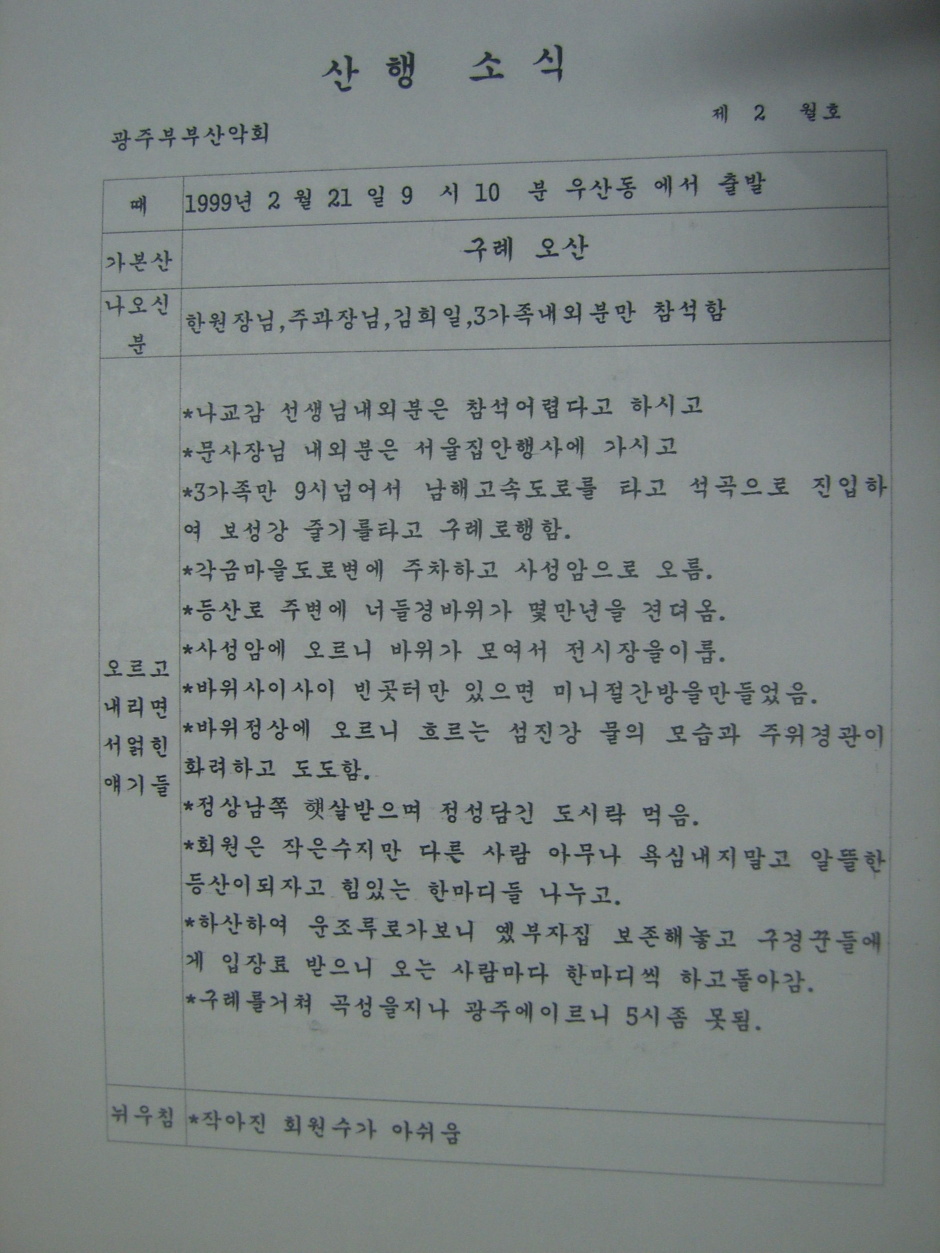 산 행 소 식
제 2 월호
광주부부산악회
때 1999년 2 월 21 일 9 시 10 분 우산동 에서 출발
가본산 구례 오산
나오신
분
한원장님,주과장님,김희일,3가족내외분만 참석함
*나교감 선생님내외분은 참석어렵다고 하시고
*문사장님 내외분은 서울집안행사에 가시고
*3가족만 9시넘어서 남해고속도로를 타고 석곡으로 진입하
여 보성강 줄기를타고 구례로행함.
*각금마을도로변에 주차하고 사성암으로 오름.
*등산로 주변에 너들경바위가 몇만년을 견뎌옴.
*사성암에 오르니 바위가 모여서 전시장을이룸.
*바위사이사이 빈곳터만 있으면 미니절간방을만들었음.
*바위정상에 오르니 흐르는 섬진강 물의 모습과 주위경관이
화려하고 도도함.
*정상남쪽 햇살받으며 정성담긴 도시락 먹음.
*회원은 작은수지만 다른 사람 아무나 욕심내지말고 알뜰한
등산이되자고 힘있는 한마디들 나누고.
*하산하여 운조루로가보니 옜부자집 보존해놓고 구경꾼들에
게 입장료 받으니 오는 사람마다 한마디씩 하고돌아감.
*구례를거쳐 곡성을지나 광주에이르니 5시좀 못됨.
오르고
내리면
서얽힌
얘기들
뉘우침 *작아진 회원수가 아쉬움